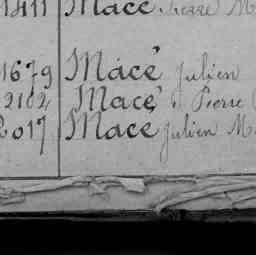 1411 Macé Pierre M
1679 Macé Julien
2102 Macé Pierre
2017 Macé Julien M